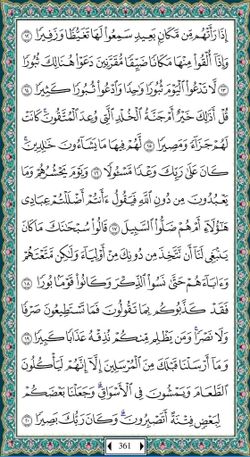 إِذَا رَأَتْهُم مِّن مَّكَانٍۭ بَعِيدٍ سَمِعُوا۟ لَهَا تَغَيُّظًا وَزَفِيرًا ١٢
وَإِذَآ أُلْقُوا۟ مِنْهَا مَكَانًا ضَيِّقًا مُّقَرَّنِينَ دَعَوْا۟ هُنَالِكَ ثُبُورًا
١٣ لَّا تَدْعُوا۟ ٱلْيَوْمَ ثُبُورًا وَٰحِدًا وَٱدْعُوا۟ ثُبُورًا كَثِيرًا ١٤
قُلْ أَذَٰلِكَ خَيْرٌ أَمْ جَنَّةُ ٱلْخُلْدِ ٱلَّتِى وُعِدَ ٱلْمُتَّقُونَ ۚ كَانَتْ
لَهُمْ جَزَآءً وَمَصِيرًا ١٥ لَّهُمْ فِيهَا مَا يَشَآءُونَ خَٰلِدِينَ ۚ
كَانَ عَلَىٰ رَبِّكَ وَعْدًا مَّسْـُٔولًا ١٦ وَيَوْمَ يَحْشُرُهُمْ وَمَا
يَعْبُدُونَ مِن دُونِ ٱللَّهِ فَيَقُولُ ءَأَنتُمْ أَضْلَلْتُمْ عِبَادِى
هَٰٓؤُلَآءِ أَمْ هُمْ ضَلُّوا۟ ٱلسَّبِيلَ ١٧ قَالُوا۟ سُبْحَٰنَكَ مَا كَانَ
يَنۢبَغِى لَنَآ أَن نَّتَّخِذَ مِن دُونِكَ مِنْ أَوْلِيَآءَ وَلَٰكِن مَّتَّعْتَهُمْ
وَءَابَآءَهُمْ حَتَّىٰ نَسُوا۟ ٱلذِّكْرَ وَكَانُوا۟ قَوْمًۢا بُورًا ١٨
فَقَدْ كَذَّبُوكُم بِمَا تَقُولُونَ فَمَا تَسْتَطِيعُونَ صَرْفًا
وَلَا نَصْرًا ۚ وَمَن يَظْلِم مِّنكُمْ نُذِقْهُ عَذَابًا كَبِيرًا ١٩
وَمَآ أَرْسَلْنَا قَبْلَكَ مِنَ ٱلْمُرْسَلِينَ إِلَّآ إِنَّهُمْ لَيَأْكُلُونَ
ٱلطَّعَامَ وَيَمْشُونَ فِى ٱلْأَسْوَاقِ ۗ وَجَعَلْنَا بَعْضَكُمْ
لِبَعْضٍ فِتْنَةً أَتَصْبِرُونَ ۗ وَكَانَ رَبُّكَ بَصِيرًا ٢٠
361